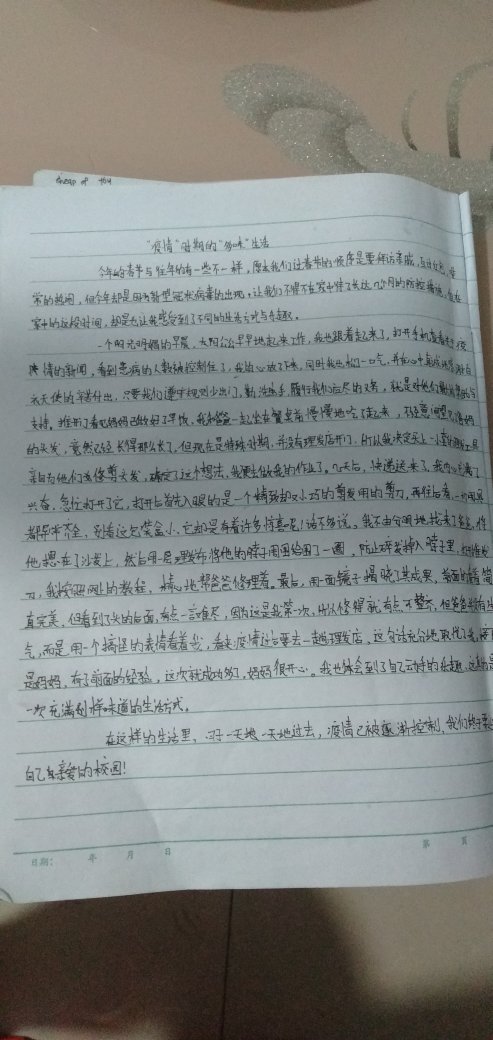 cheap of
"疫情"时期的"多味"生活
今年的春节与往年的有一些不一样，原本我们过春节的顺序是要拜访亲戚，互
常的热闹，但今年却是因为新型冠状病毒的出现，让我们不得不在家中待了长达几个月的防控措施，但在
家中的这段时间，却是也让我感受到了不同的生活方式与乐趣。
一个阳光明媚的早晨，太阳公公早早地起来工作，我也跟着起来了，打开手机查看关于疫
情的新闻，看到患病的人数被控制住了，我的心放下来，同时我也松了一口气，并在心中
衣天使的辛苦付出，只要我们遵守规则少出门，勤洗手，履行我们应尽的义务，就是对他们
支持，推开门看见妈妈已做好了早饭，我和爸爸一起坐在餐桌前慢慢地吃了起来，不经意间望见爸妈
的头发，竟然已经长得那么长了，但现在是特殊时期，并没有理发店开门，所以我决定买上一套理发工具
亲自为他们修剪头发，确定了这个想法，我便去做我的作业了，几天后，快递送来了，我内心充满了
兴奋，急忙打开了它，打开后首先入眼的是一个精致却又小巧的剪发用的剪刀，再往后看，一切用具
都非常齐全，别看这包装盒小，它却是有着许多惊喜呢！话不多说。我不由分明地找来了爸爸，将
他摁在了沙发上，然后用一层理发布将他的脖子周围给围了一圈，防止碎发掉入脖子里，
刀，我按照网址的教程，精心地帮爸爸修理着。最后，用一面镜子揭晓了其成果，前面的看着简
直完美，但看到了头的后面，有点一言难尽，因为这是我第一次，所以修得就有点不整齐，但爸爸没有生
气，而是用个搞怪的表情看着我，看来疫情过后要去一趟理发店，这句话充分地取代了我，接下
是妈妈，有了前面的经验，这次就成功多了，妈妈很开心。我也体会到了自己动手的乐趣，这真的是
一次充满别样味道的生活方式。
在这样的生活里，日子一天地一天地过去，疫情已被逐渐控制，我们终于
自己亲爱的校园！
日期：　年　月　日　第　页